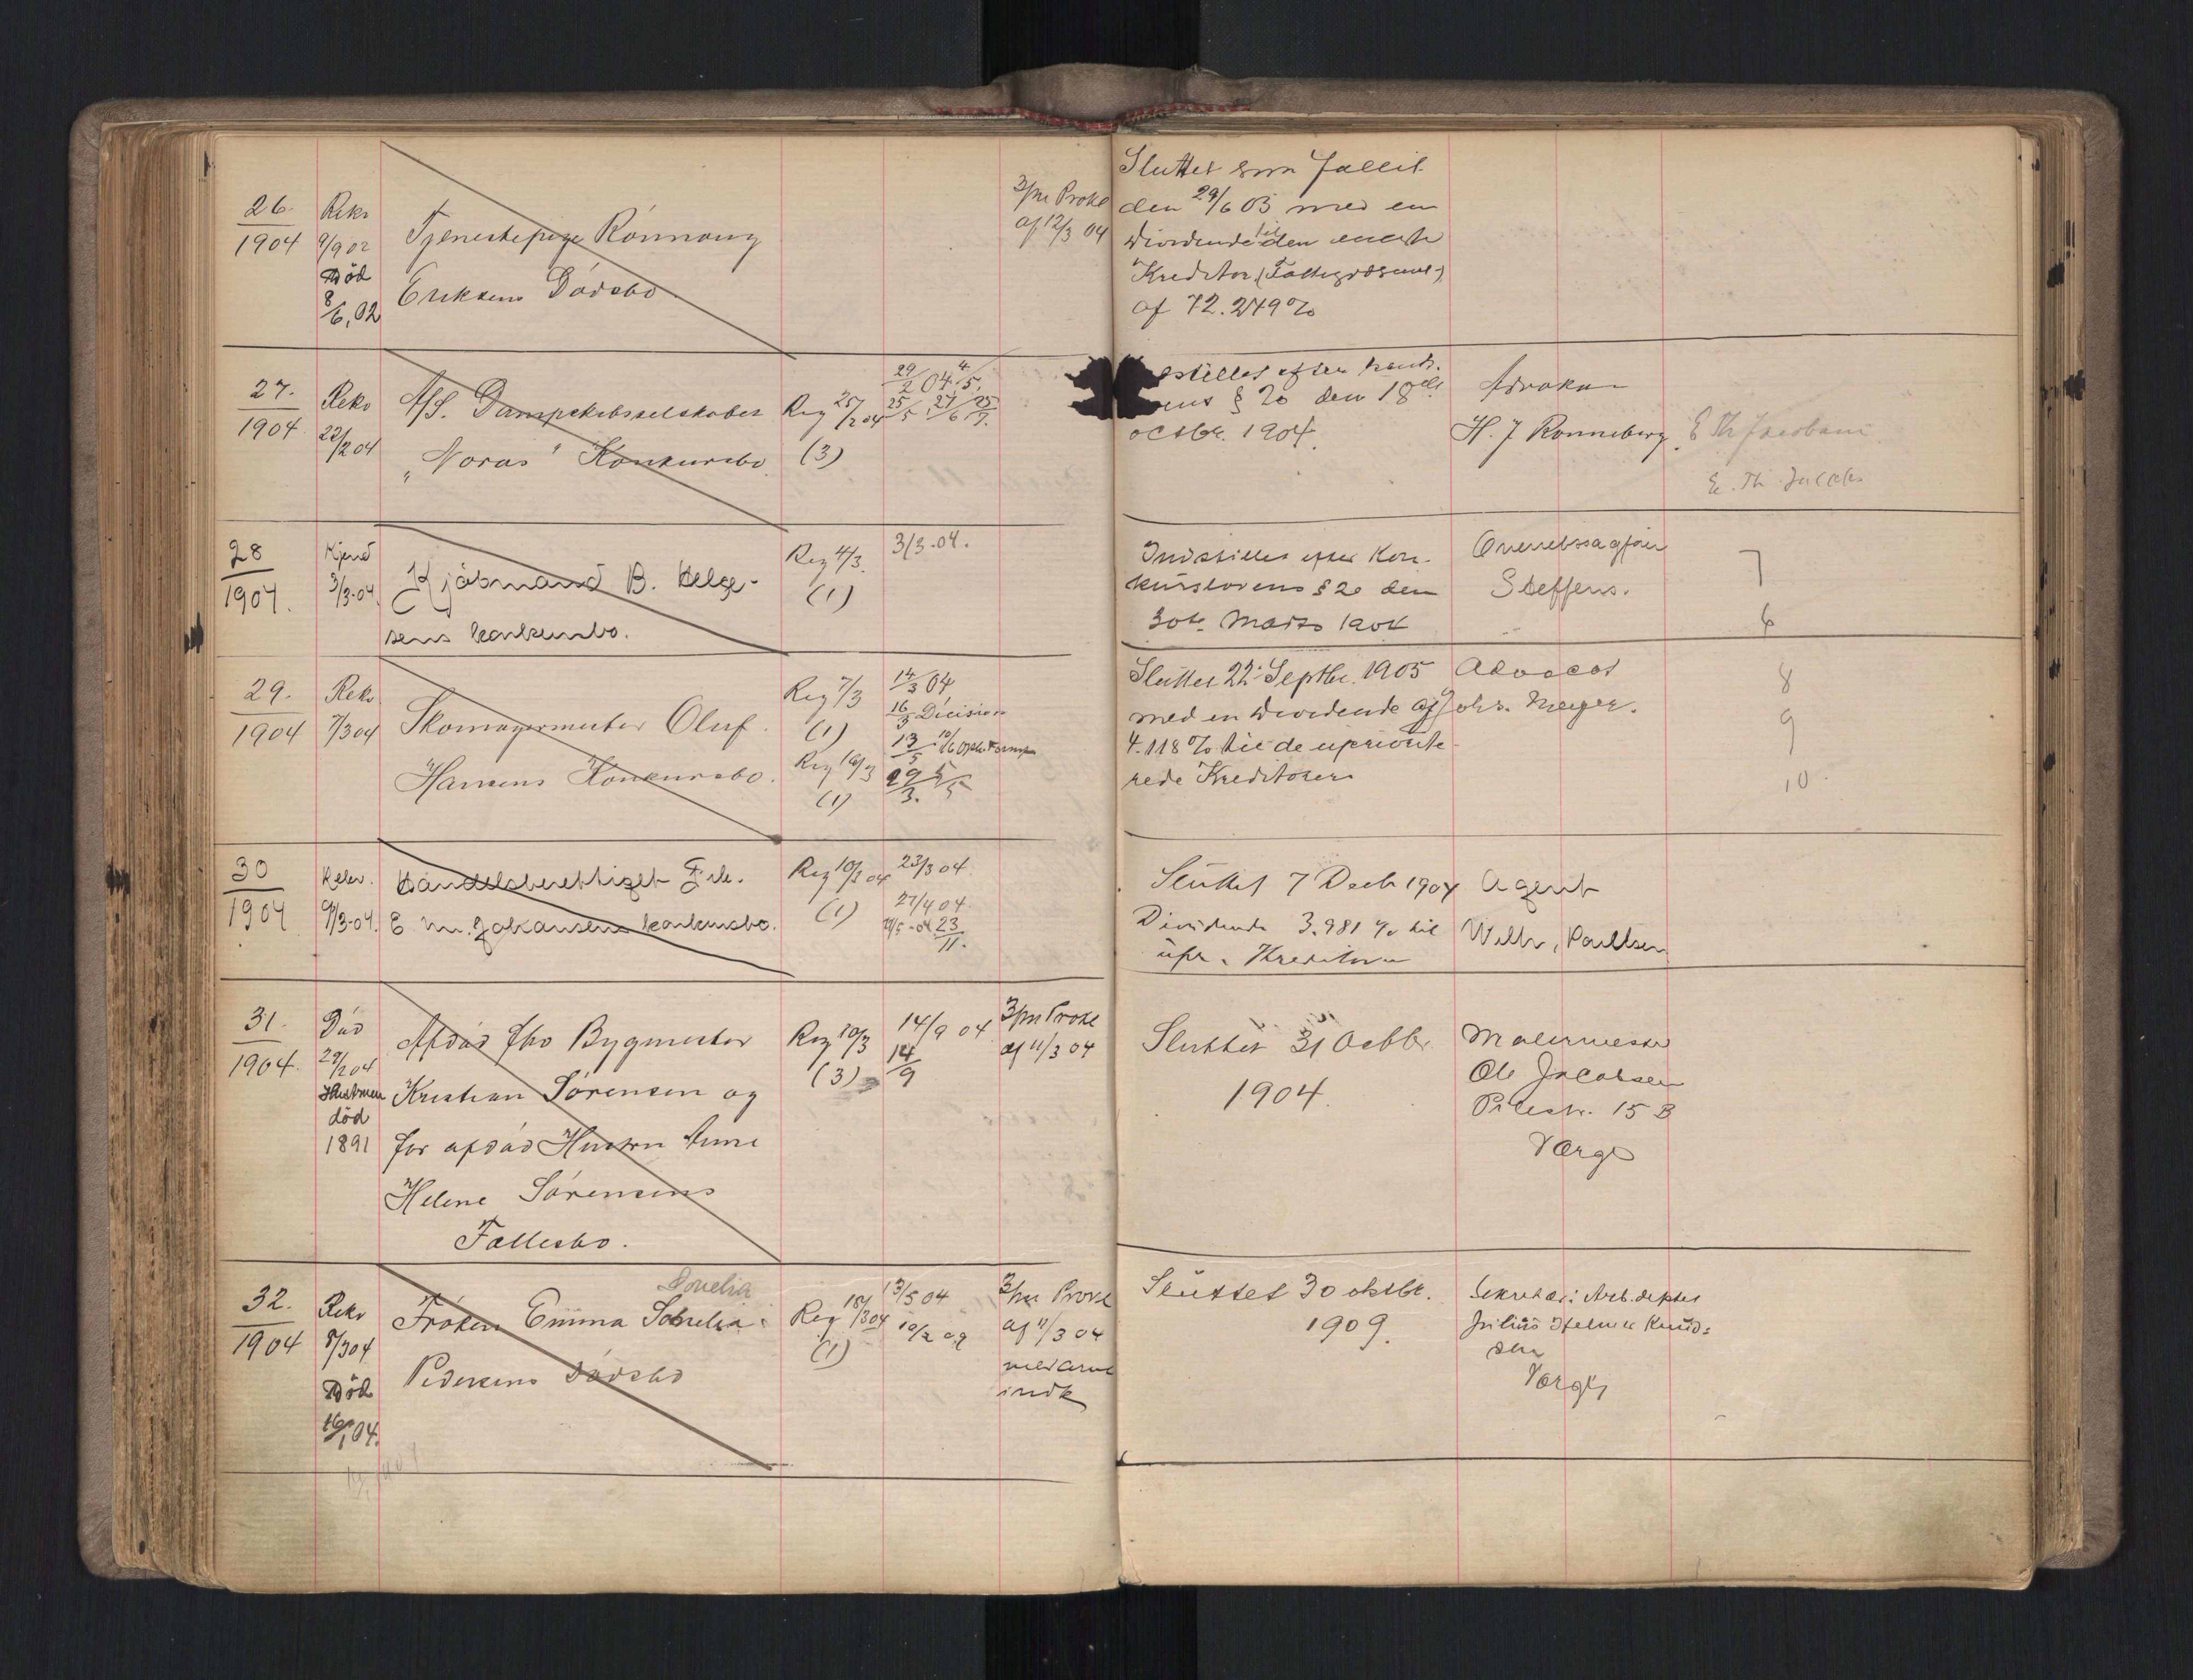 26.
1904
Rekv
9/9 02
Död
8/6, 02
Tjenestepige Rönnaug
Eriksens Dödsbo.
3/m Prokl
af 12/3 04
Sluttet som Fallit
den 29/6 03 med en
Dividende til den eneste
Kreditor (Fattigvæsenet)
af 72.249%
27.
1904
Rekv
22/2 04
A/S. Dampskibsselskabet
„Noras" Konkursbo
Reg 25/2 04
(3)
29/2 04. 4/5.
25/5 27/6 25/7.
stilles efter konk.
ens § 20 den 18de
octbr. 1904.
Advokat
H. J Ronneberg.
E Th Jacobsen
E. Th Jacobs
28
1904.
Kjend
3/3-04.
Kjöbmand B. Helge-
sens konkursbo.
Reg 4/3.
(1)
3/3-04.
Indstilles efter Kon-
kurslovens § 20 den
30te Marts 1904
Overretssagfører
Steffens.
7
6
29.
1904
Rekv
7/3 04
Skomagermester Oluf
Hansens Konkursbo.
Reg 7/3
(1)
Reg 16/3
(1)
14/3 04
16/3 Decision
13/5
29/3.
Sluttet 22. Septbr. 1905
med en Dividende af
4.118% til de upriorite-
rede Kreditorer
Advocat
Johs. Meyer.
8
9
10
30
1904
Rekv.
9/3-04.
Handelsberettiget Frk.
E M. Johansens konkursbo.
Reg 10/3 04
(1)
23/3 04.
27/4 04.
23/11.
Sluttet 7 Decb 1904
Dividende 3.981 % til
upr. Kreditorer
Agent
Wilh. Paulsen
31.
1904.
Död
29/2 04
Hustruen
död
1891
Afdöd fhv Bygmester
Kristian Sörensen og
før afdöd Hustru Anne
Helene Sörensens
Fællesbo.
Reg 10/3
(3)
14/9 04
14/9
3/m Prokl
af 11/3 04
Sluttet 31 Octbbr.
1904.
Malermester
Ole Jacobsen
Pilestr. 15 B
Værge
32.
1904
Rekv
8/3 04
Död
16/1 04.
Frøken Emma
Pedersens Dödsbo
Reg 18/3 04
(1)
13/5 04
10/2 09
3/m Prokl
af 11/3 04
med arve
indk
Sluttet 30 oktbr.
1909.
Sekretær i Arb. depttet
Julius Knud-
sen
Værge